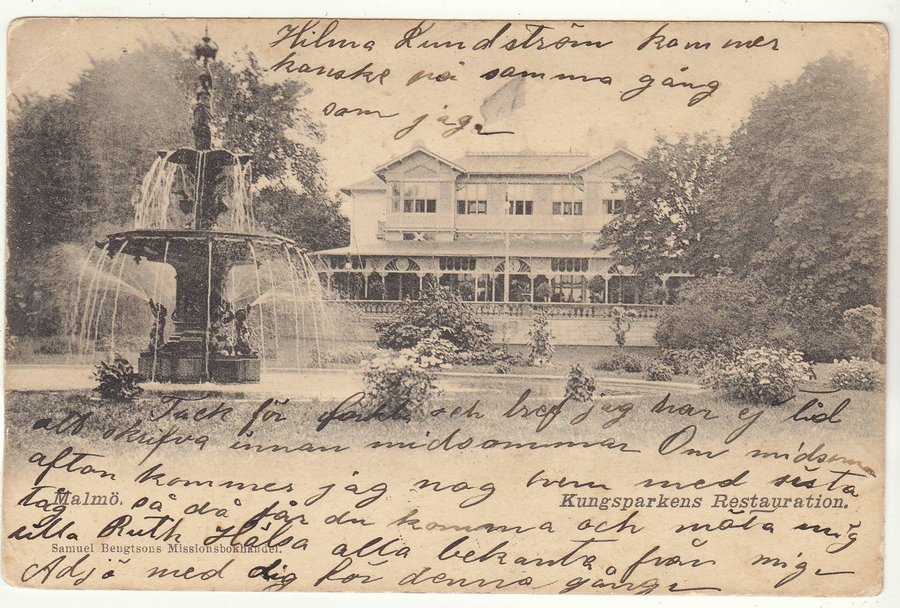 Hilma Rundström kommer
kanske på samma gång
som jag.
Tack för kort och bref jag har ej tid
att skrifva innan midsommar Om midsomar
afton kommer jag nog hem med sista
tåg så då får du komma och möta mig
Malmö.
Kungsparkens Restauration.
lilla Ruth Hälsa alla bekanta från mig
Samuel Bengtsons Missionsbokhandel.
Adjö med dig för denna gång